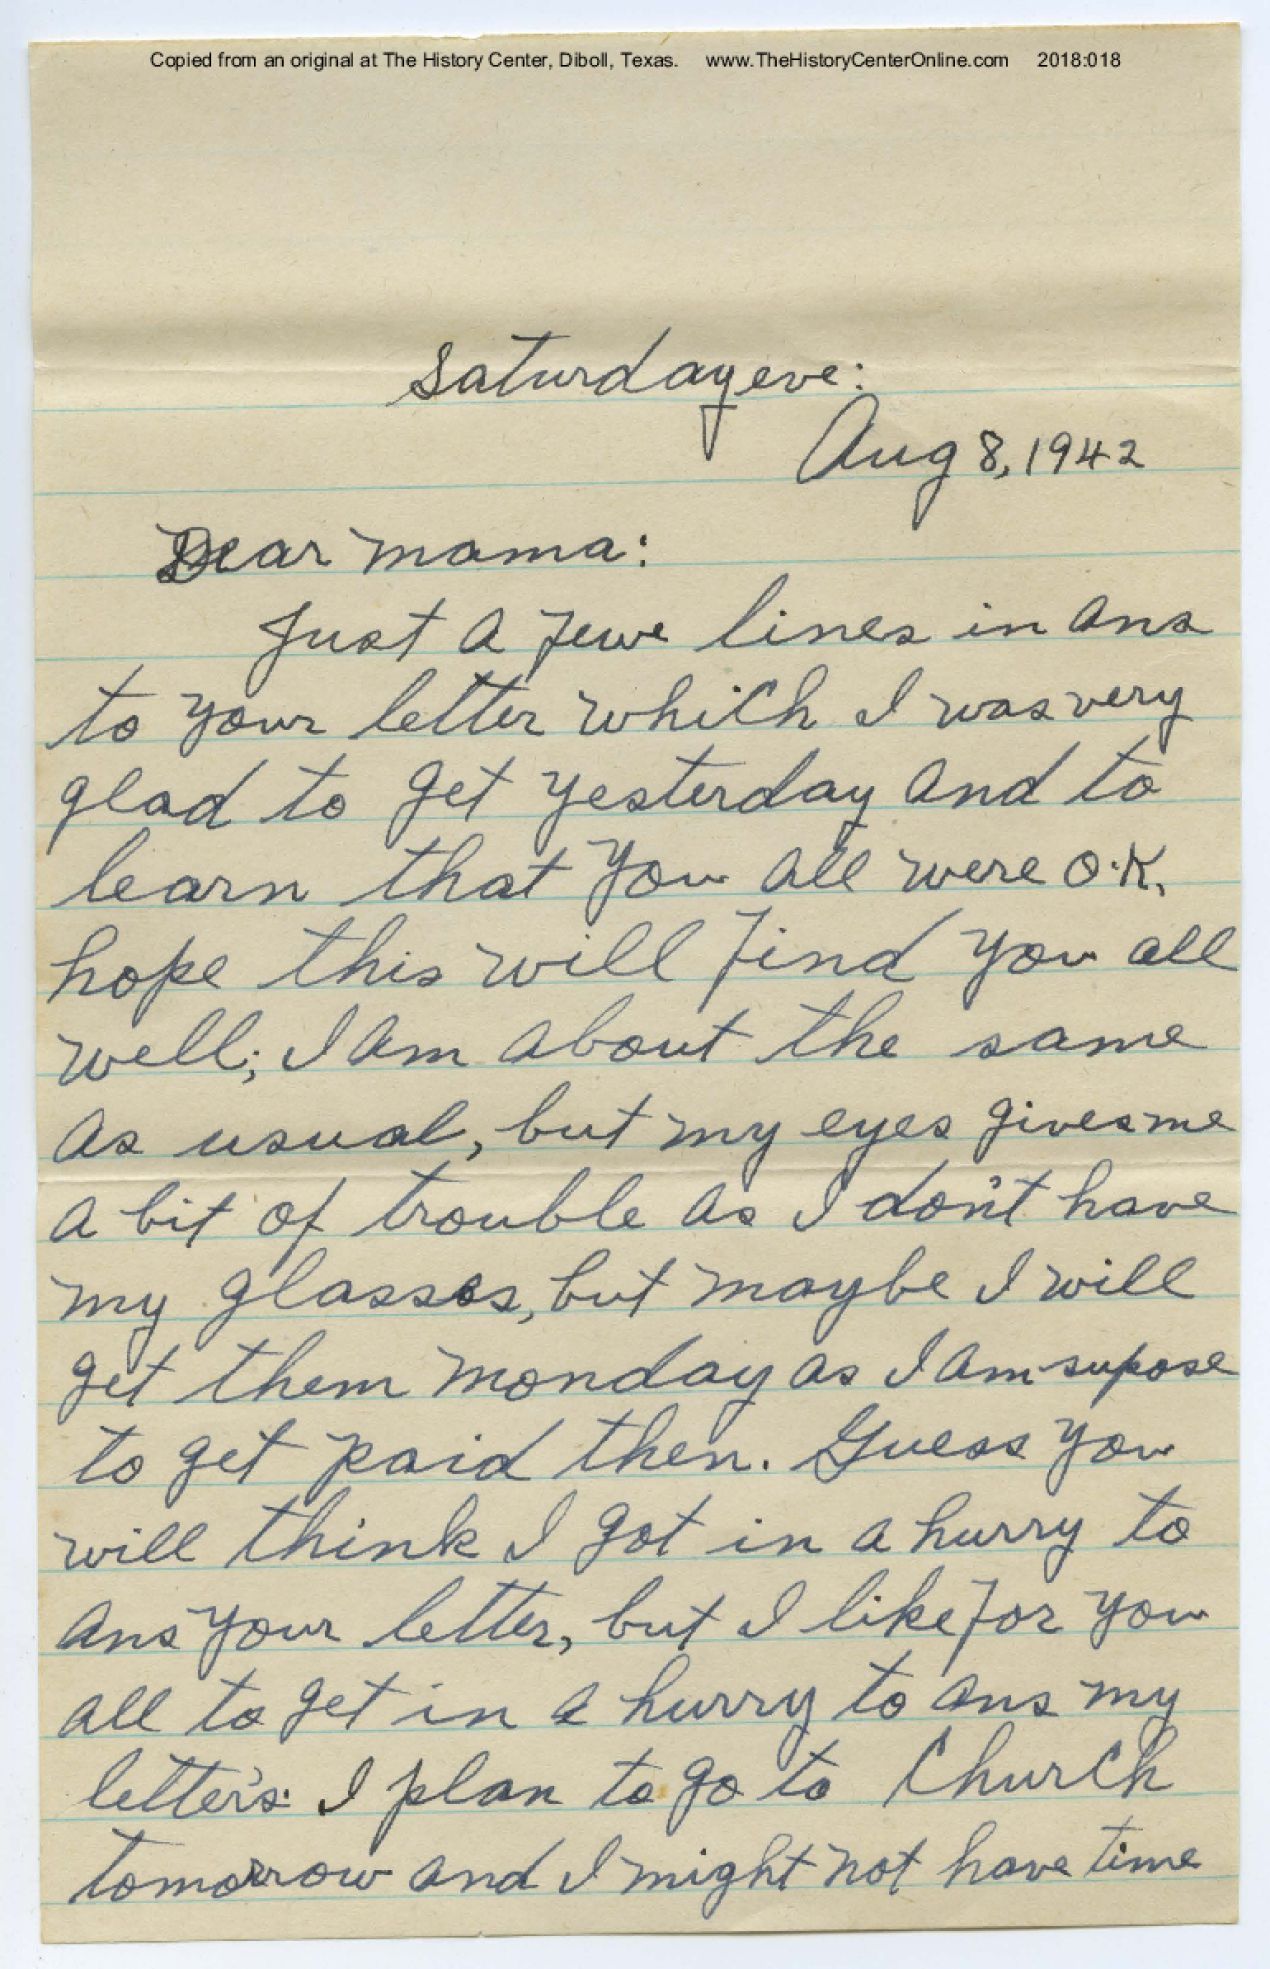 Copied from an original at The History Center, Diboll, Texas. www.TheHistoryCenterOnline.com 2018:018
Saturday eve:
Aug 8, 1942
Dear mama:
Just a fewe lines in ans
to your letter which I was very
glad to get yesterday and to
learn that you all were O.K.
hope this will find you all
well; I am about the same
as usual, but my eyes gives me
a bit of trouble as I don't have
my glasses, but maybe I will
get them monday as I am supose
to get paid then. Guess you
will think I got in a hurry to
ans your letter, but I like for you
all to get in a hurry to ans my
letter's. I plan to go to Church
tomorrow and I might not have time